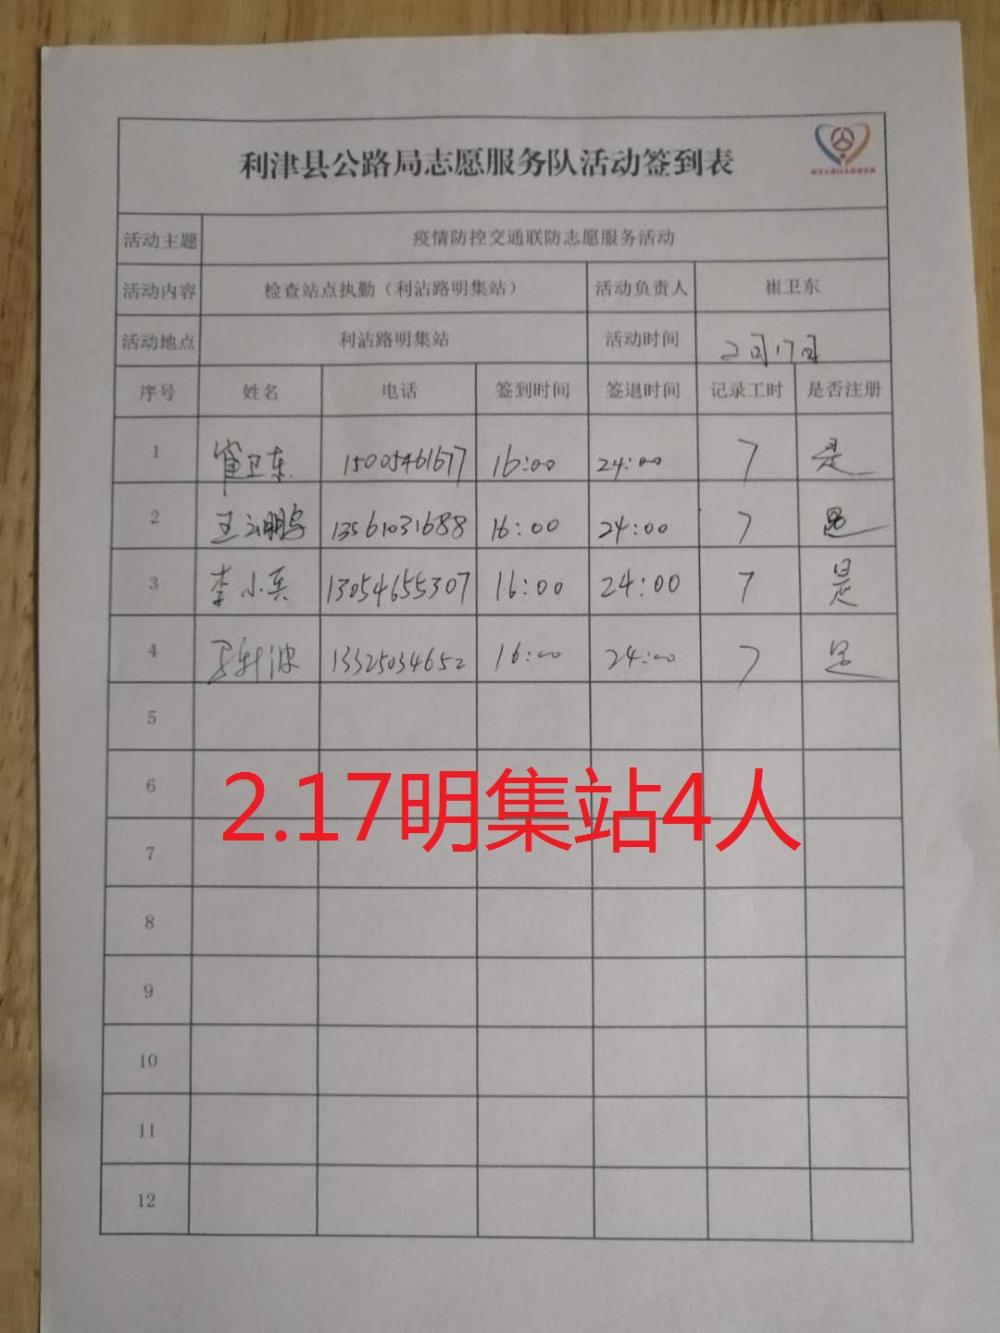 利津县公路局志愿服务队活动签到表
活动主题 疫情防控交通联防志愿服务活动
活动内容 检查站点执勤（利沾路明集站） 活动负责人 崔卫东
活动地点 利沾路明集站 活动时间 2月17日
序号 姓名 电话 签到时间 签退时间 记录工时 是否注册
1 崔卫东 15005461677 16:00 24:00 7 是
2 王云鹏 13561031688 16:00 24:00 7 是
3 李小兵 13054655307 16:00 24:00 7 是
4 13325034652 16:00 24:00 7 是
5
6
2.17明集站4人
7
8
9
10
11
12